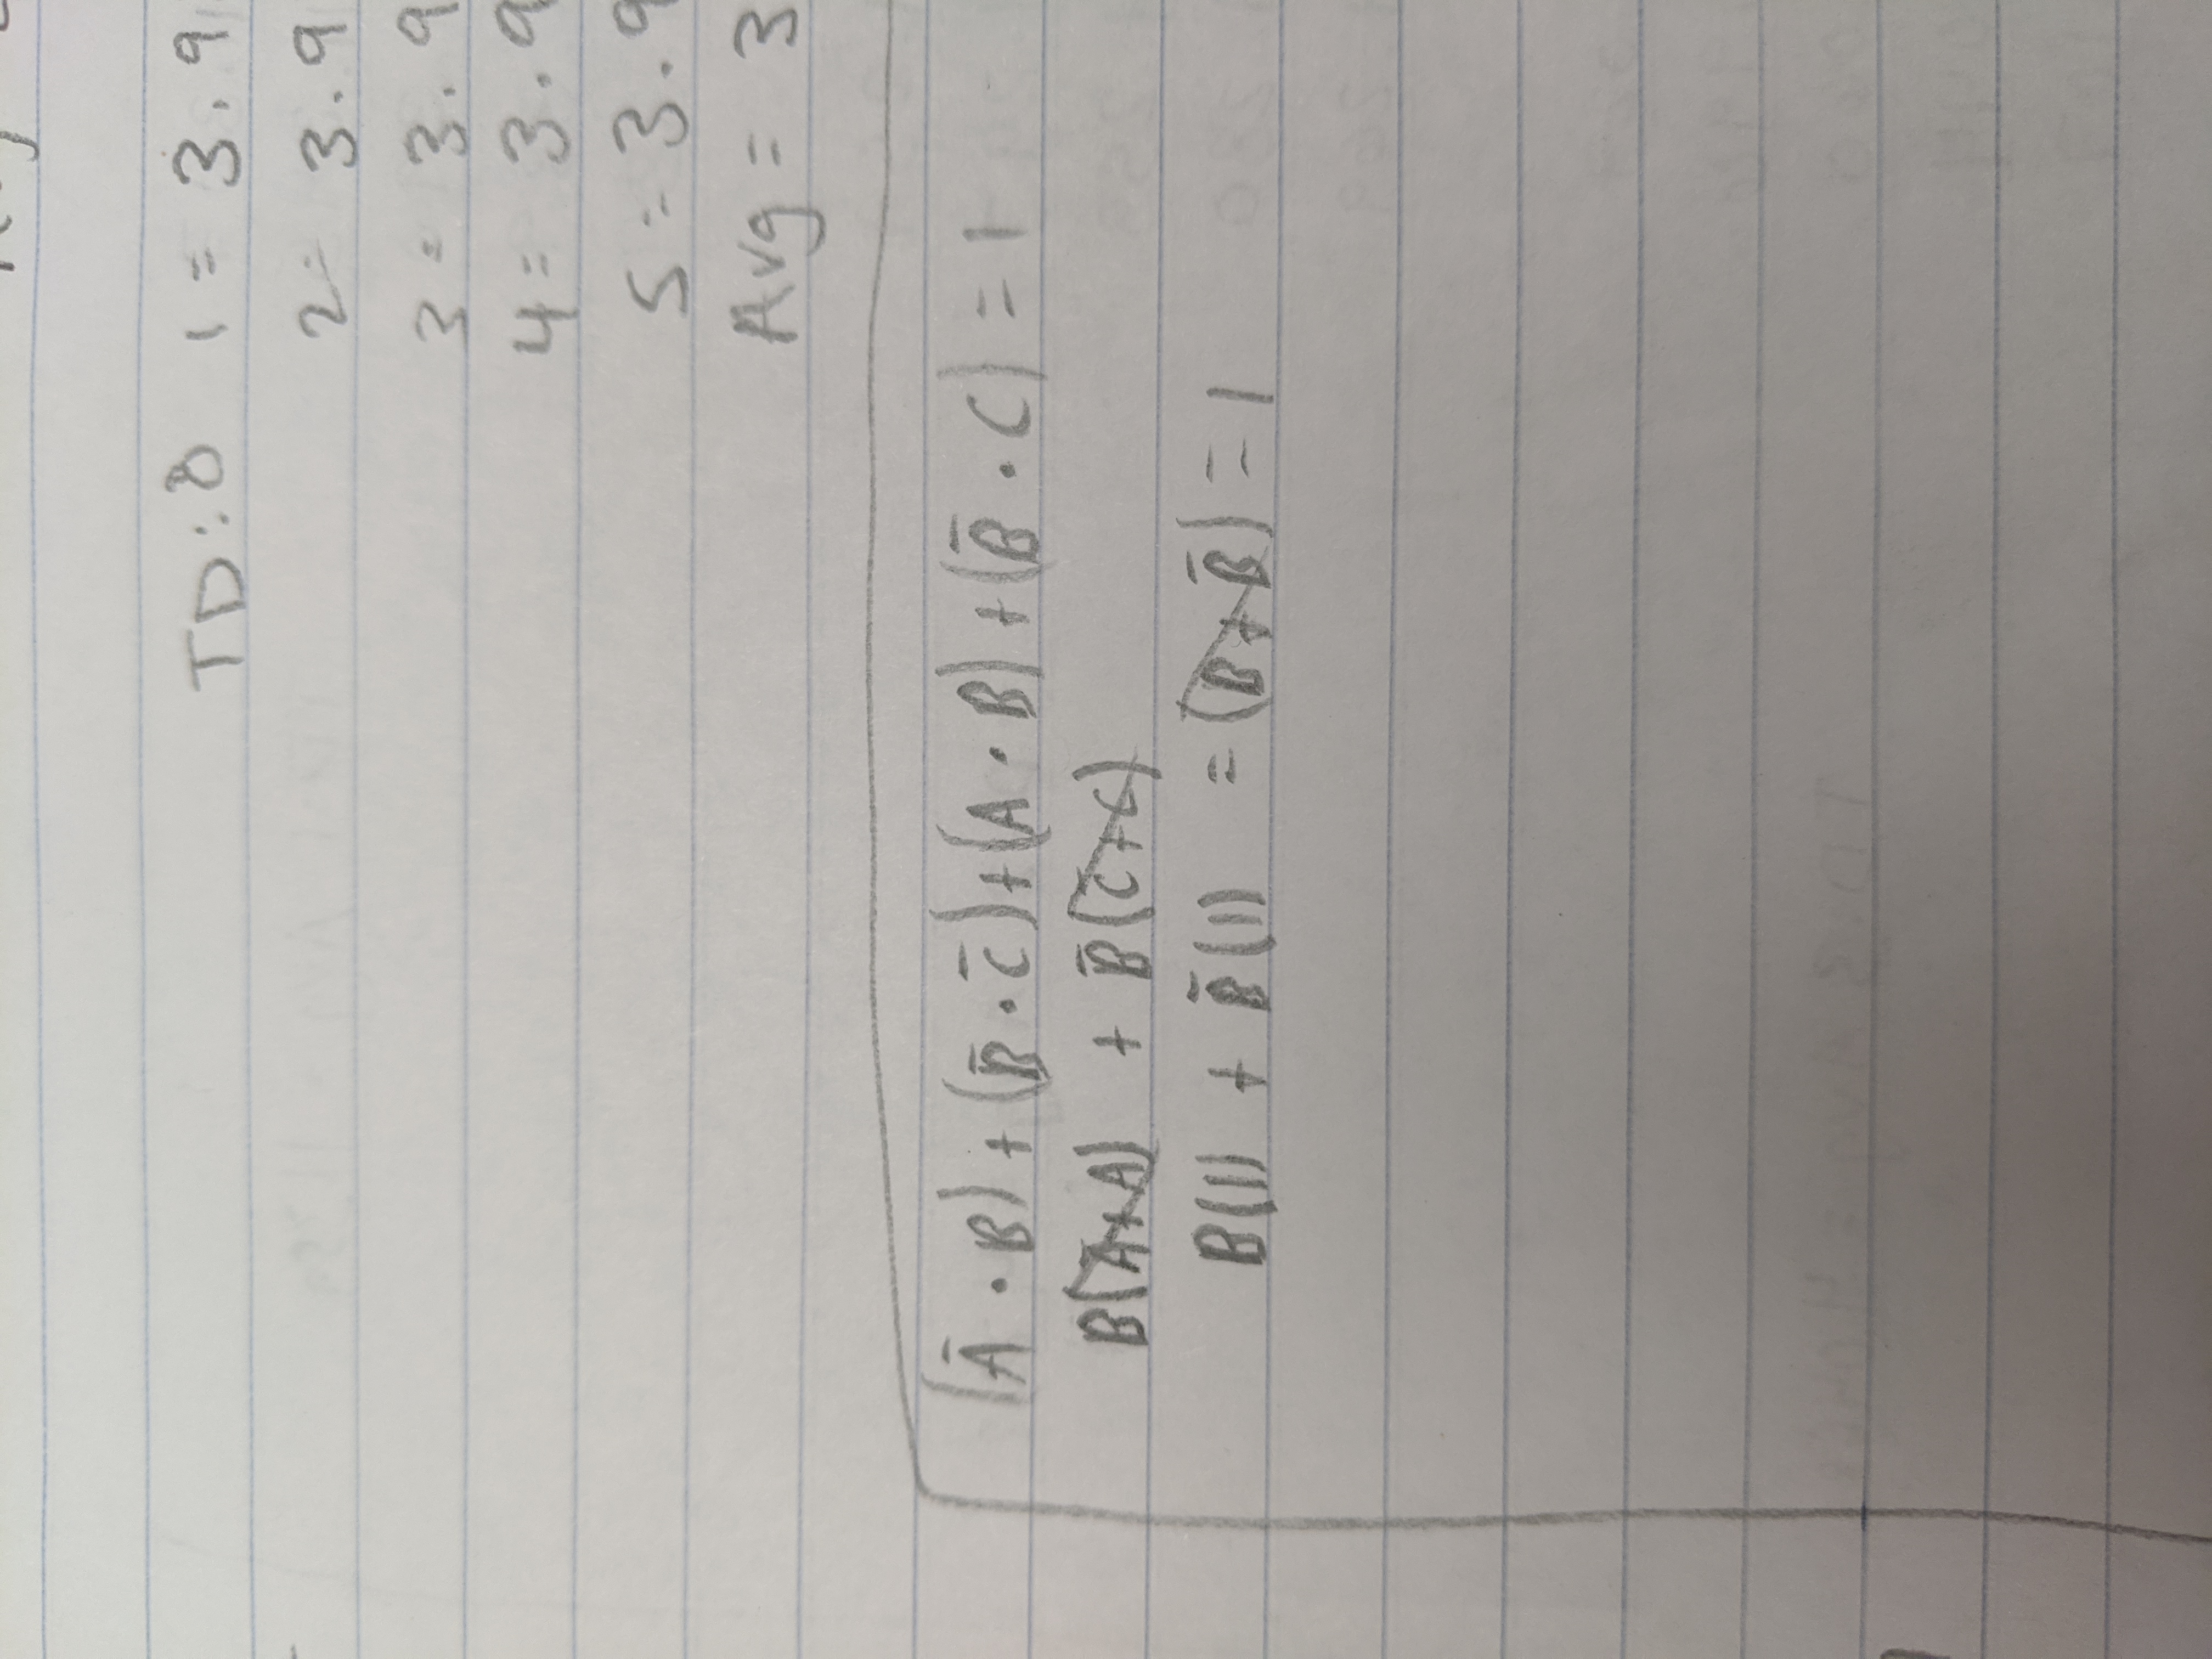 TD: 8 1 = 3.9
2 = 3.9
3 = 3.9
4 = 3.9
5 = 3.9
Avg = 3
(Ā · B) + (B̄ · C̄) + (A · B) + (B̄ · C) = 1
B(Ā+A) + B̄(C̄+C)
B(1) + B̄(1) = (B+B̄) = 1